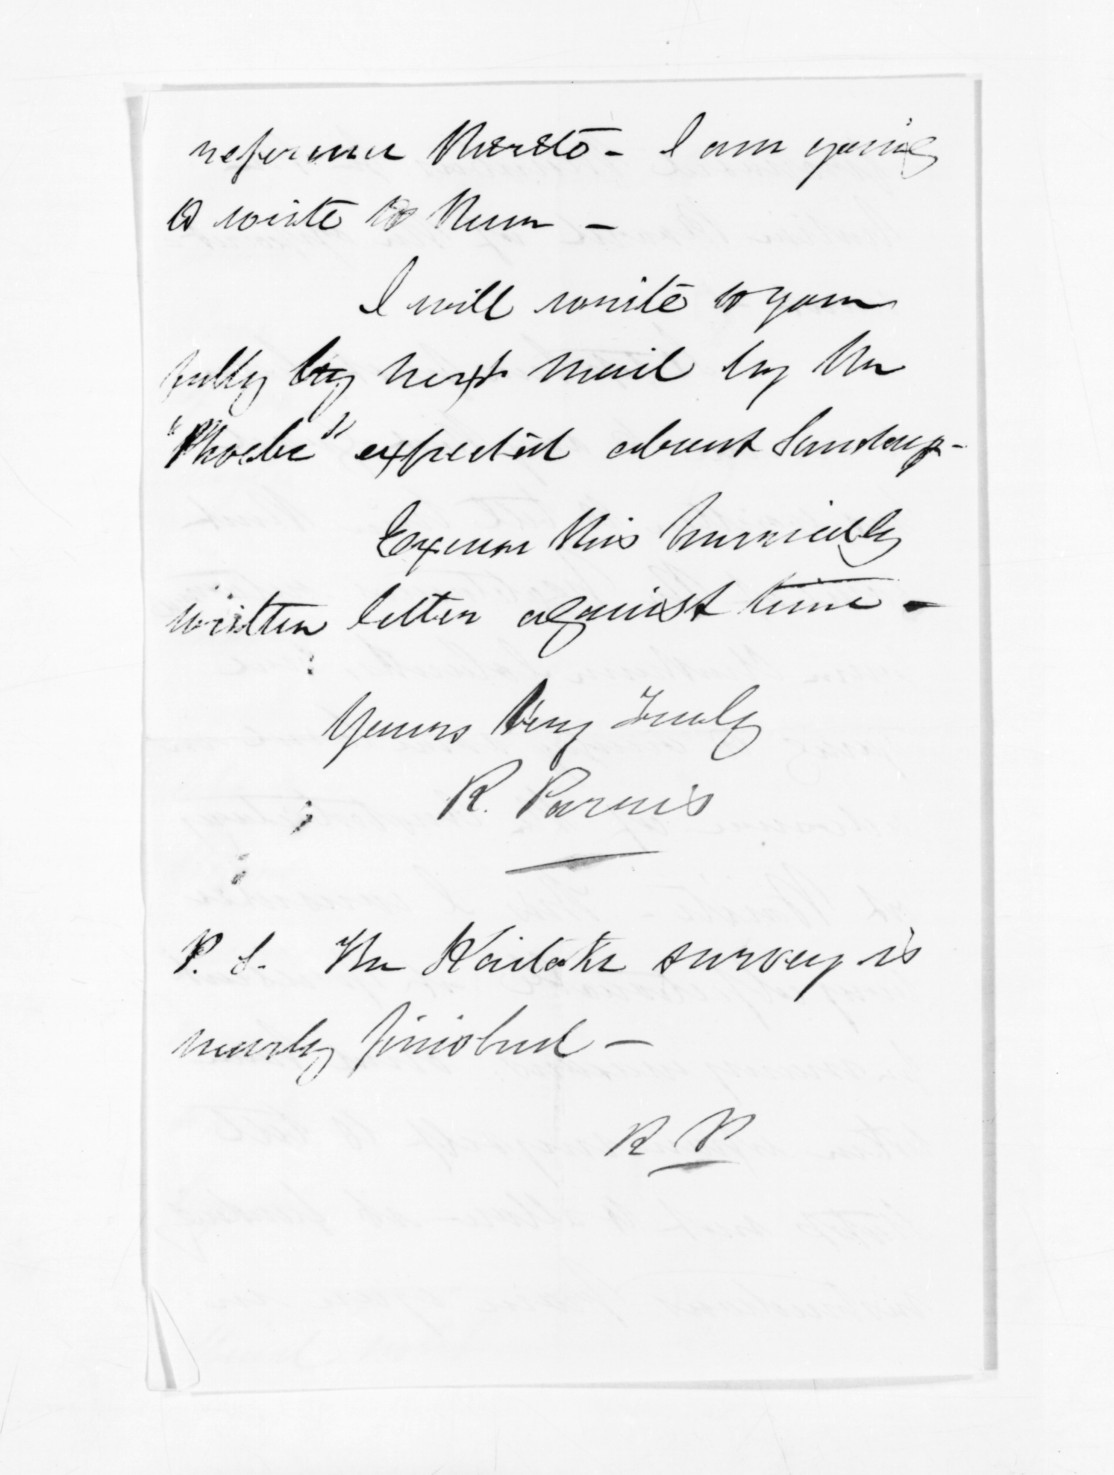 reference thereto - I am going
to write to them -
I will write to you
fully by next mail by the
"Phoebe" expected about Sunday -
Excuse this hurriedly
written letter against time -
Yours Very Truly
R. Parris
P. S. The Kaitake survey is
nearly finished -
R P